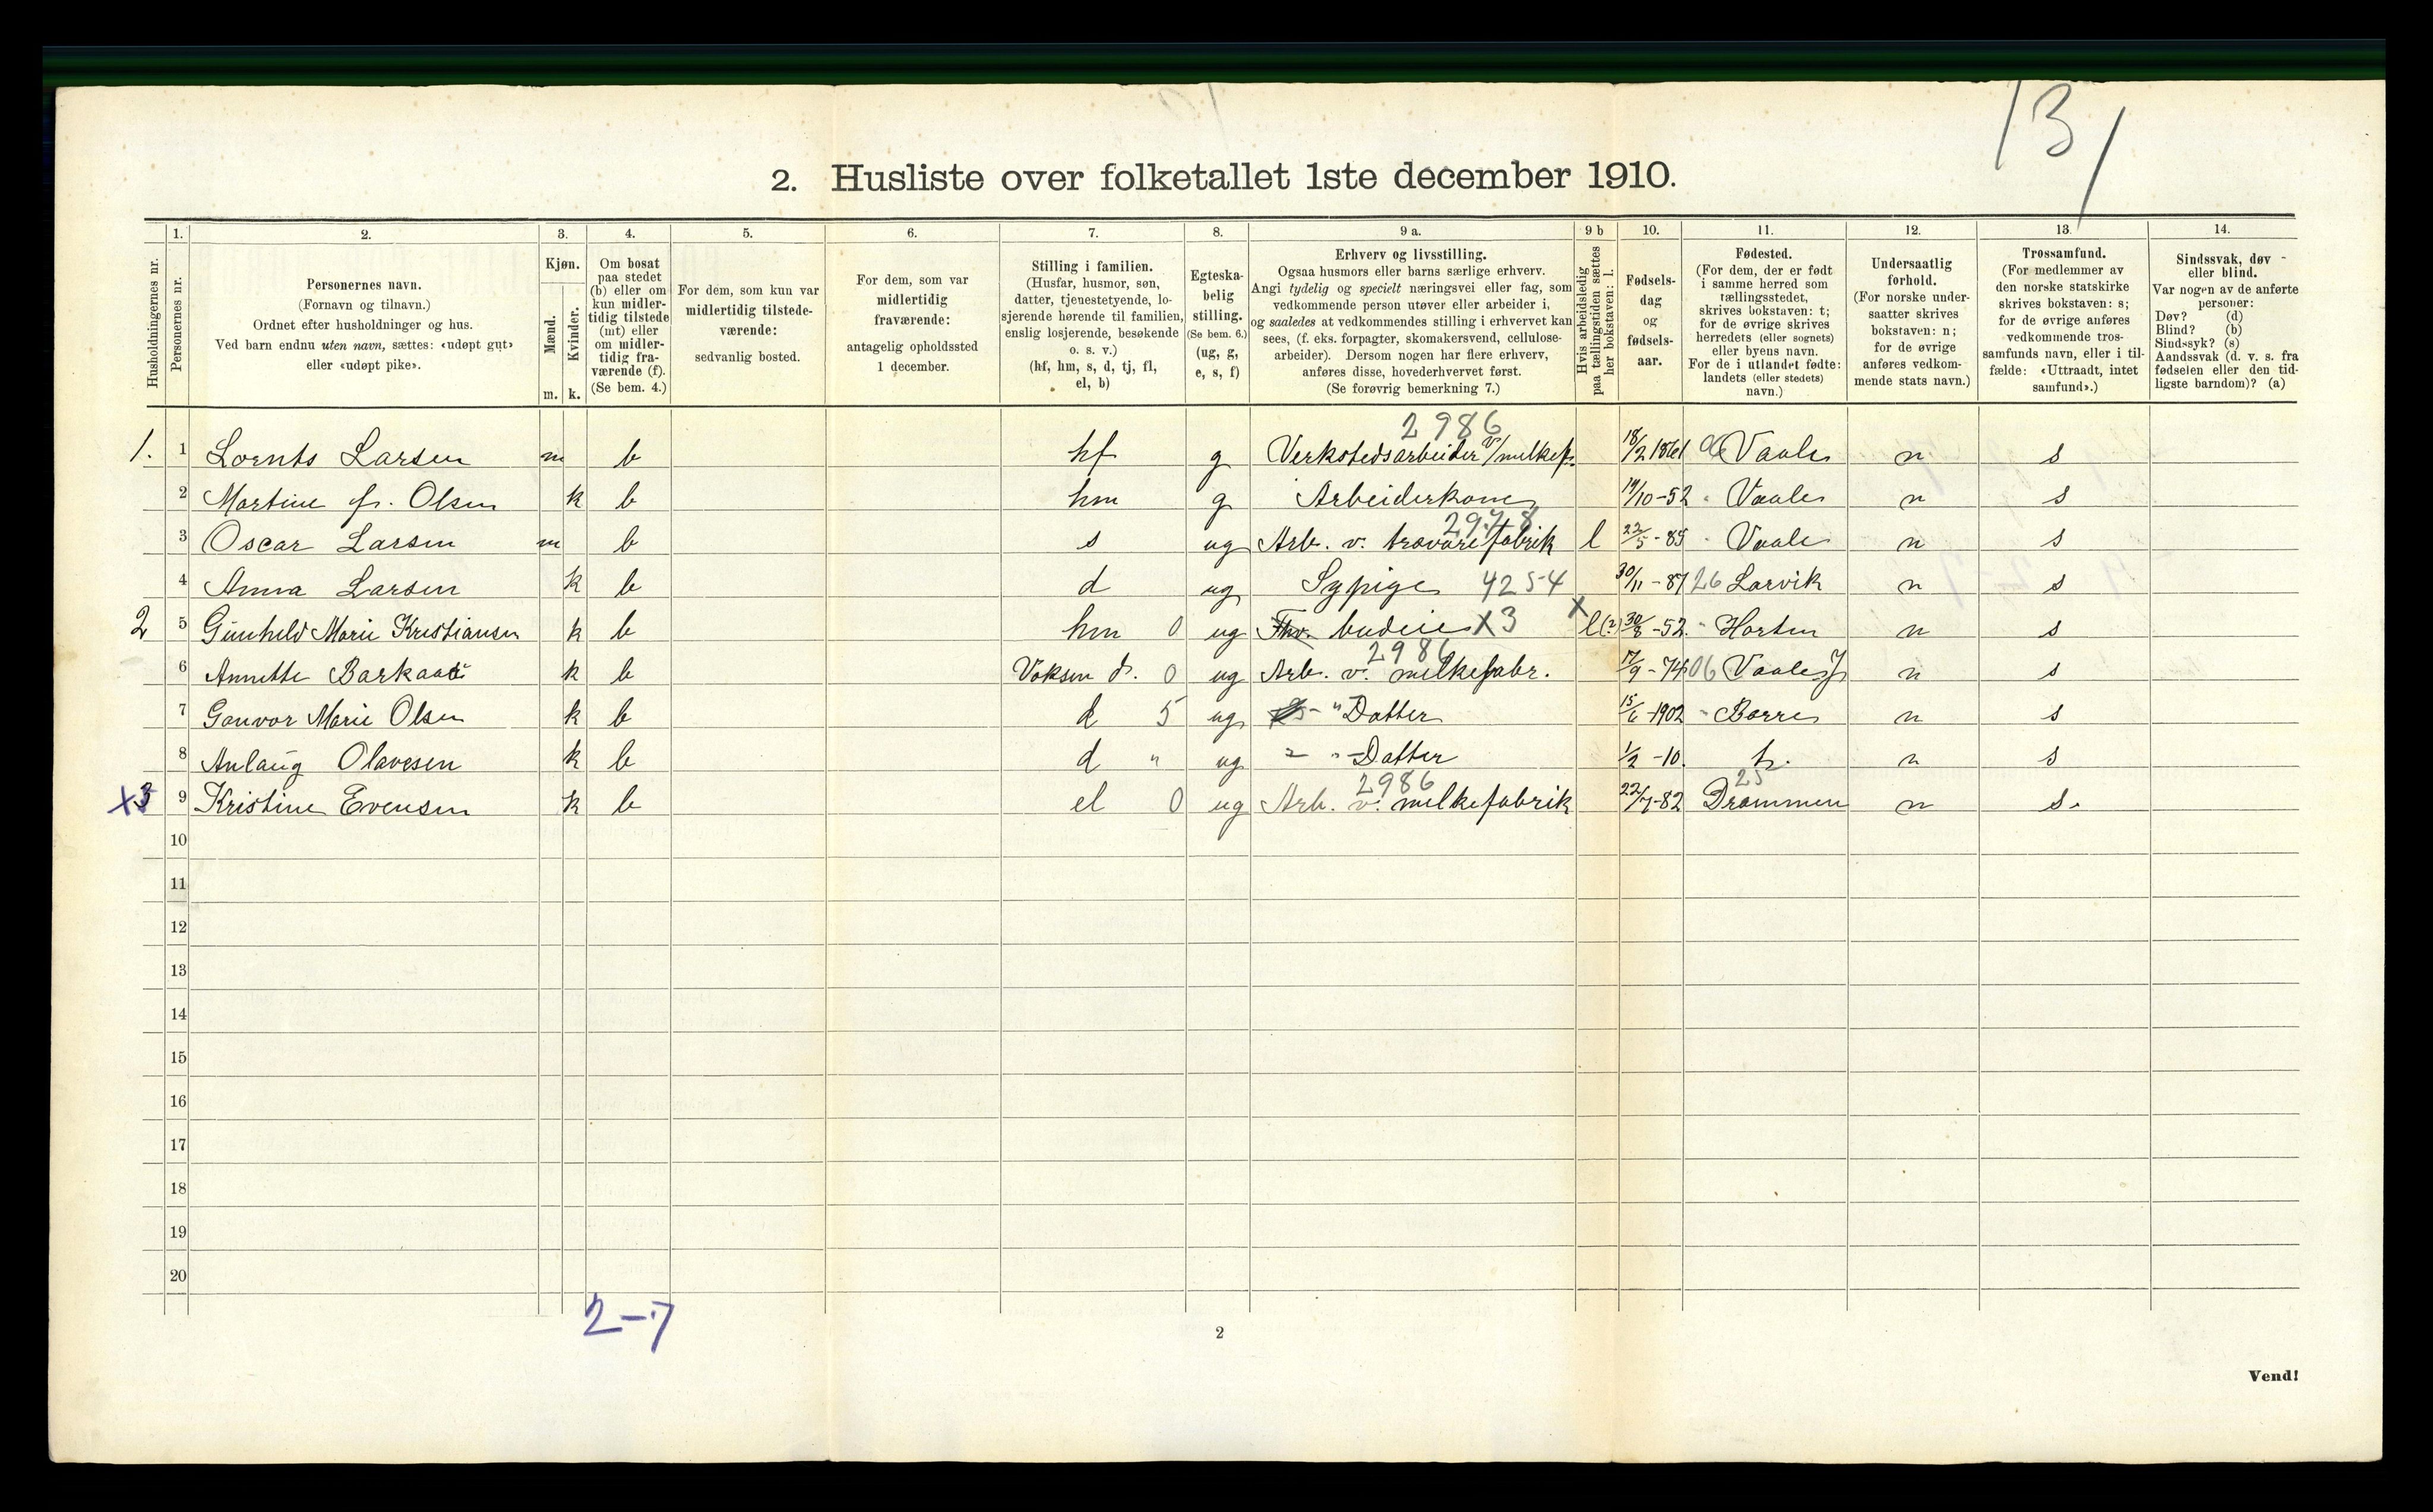 13/
2. Husliste over folketallet 1ste december 1910.
Husholdningernes nr.
1. Personernes nr.
2. Personernes navn. (Fornavn og tilnavn.) Ordnet efter husholdninger og hus. Ved barn endnu uten navn, sættes: «udøpt gut» eller «udøpt pike».
3. Kjøn. Mænd. m. Kvinder. k.
4. Om bosat paa stedet (b) eller om kun midlertidig tilstede (mt) eller om midlertidig fraværende (f). (Se bem. 4.)
5. For dem, som kun var midlertidig tilstedeværende: sedvanlig bosted.
6. For dem, som var midlertidig fraværende: antagelig opholdssted 1 december.
7. Stilling i familien. (Husfar, husmor, søn, datter, tjenestetyende, losjerende hørende til familien, enslig losjerende, besøkende o. s. v.) (hf, hm, s, d, tj, fl, el, b)
8. Egteskabelig stilling. (Se bem. 6.) (ug, g, e, s, f)
9 a. Erhverv og livsstilling. Ogsaa husmors eller barns særlige erhverv. Angi tydelig og specielt næringsvei eller fag, som vedkommende person utøver eller arbeider i, og saaledes at vedkommendes stilling i erhvervet kan sees, (f. eks. forpagter, skomakersvend, cellulosearbeider). Dersom nogen har flere erhverv, anføres disse, hovederhvervet først. (Se forøvrig bemerkning 7.)
9 b Hvis arbeidsledig paa tællingstiden sættes her bokstaven: l.
10. Fødselsdag og fødselsaar.
11. Fødested. (For dem, der er født i samme herred som tællingsstedet, skrives bokstaven: t; for de øvrige skrives herredets (eller sognets) eller byens navn. For de i utlandet fødte: landets (eller stedets) navn.)
12. Undersaatlig forhold. (For norske undersaatter skrives bokstaven: n; for de øvrige anføres vedkommende stats navn.)
13. Trossamfund. (For medlemmer av den norske statskirke skrives bokstaven: s; for de øvrige anføres vedkommende trossamfunds navn, eller i tilfælde: «Uttraadt, intet samfund».)
14. Sindssvak, døv eller blind. Var nogen av de anførte personer: Døv? (d) Blind? (b) Sindssyk? (s) Aandssvak (d. v. s. fra fødselen eller den tidligste barndom)? (a)
2986
1. 1 Lornts Larsen m b hf g Verkstedsarbeider v/melkef. 18/2 1861 06 Vaale n s
2 Martine f. Olsen k b hm g Arbeiderkone 19/10-52 " Vaale n s
2978
3 Oscar Larsen m b s ug Arb. v. trævarefabrik l 22/5-85 " Vaale n s
4 Anna Larsen k b d ug Sypige 4254 30/11-87 26 Larvik n s
2 5 Gunhild Marie Kristiansen k b hm 0 ug Fhv. budeie X3 x l(?) 30/8-52 " Horten n s
2986
6 Annette Barkaat k b Voksen d. 0 ug Arb. v. melkefabr. 17/9-74 06 Vaale n s
7 Gunvor Marie Olsen k b d 5 ug " Datter 15/6-1902 - Borre n s
8 Anlaug Olavesen k b d " ug " Datter 1/2-10. t. n s
2986 25
x3 9 Kristine Evensen k b el 0 ug Arb. v. melkefabrik 22/7-82 Drammen n s.
10
11
12
13
14
15
16
17
18
19
20
2-7
2
Vend!